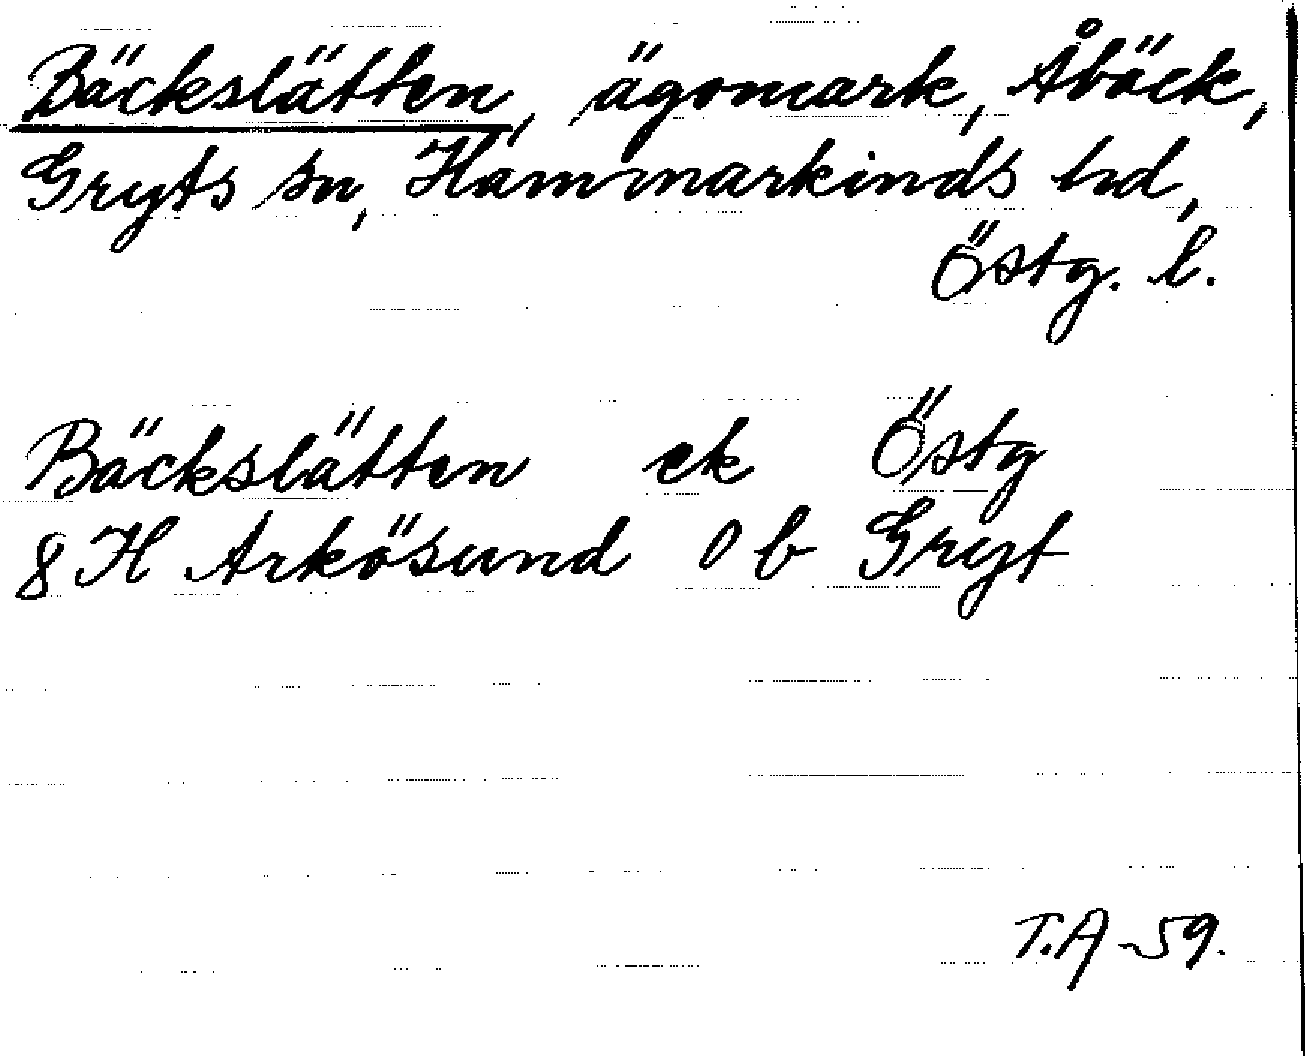 Bäckslätten, ägomark, Åbäck,
Gryts sn, Hammarkinds hd,
Östg. l.
Bäckslätten ek Östg
8 H Arkösund 0 b Gryt
T.A -59.